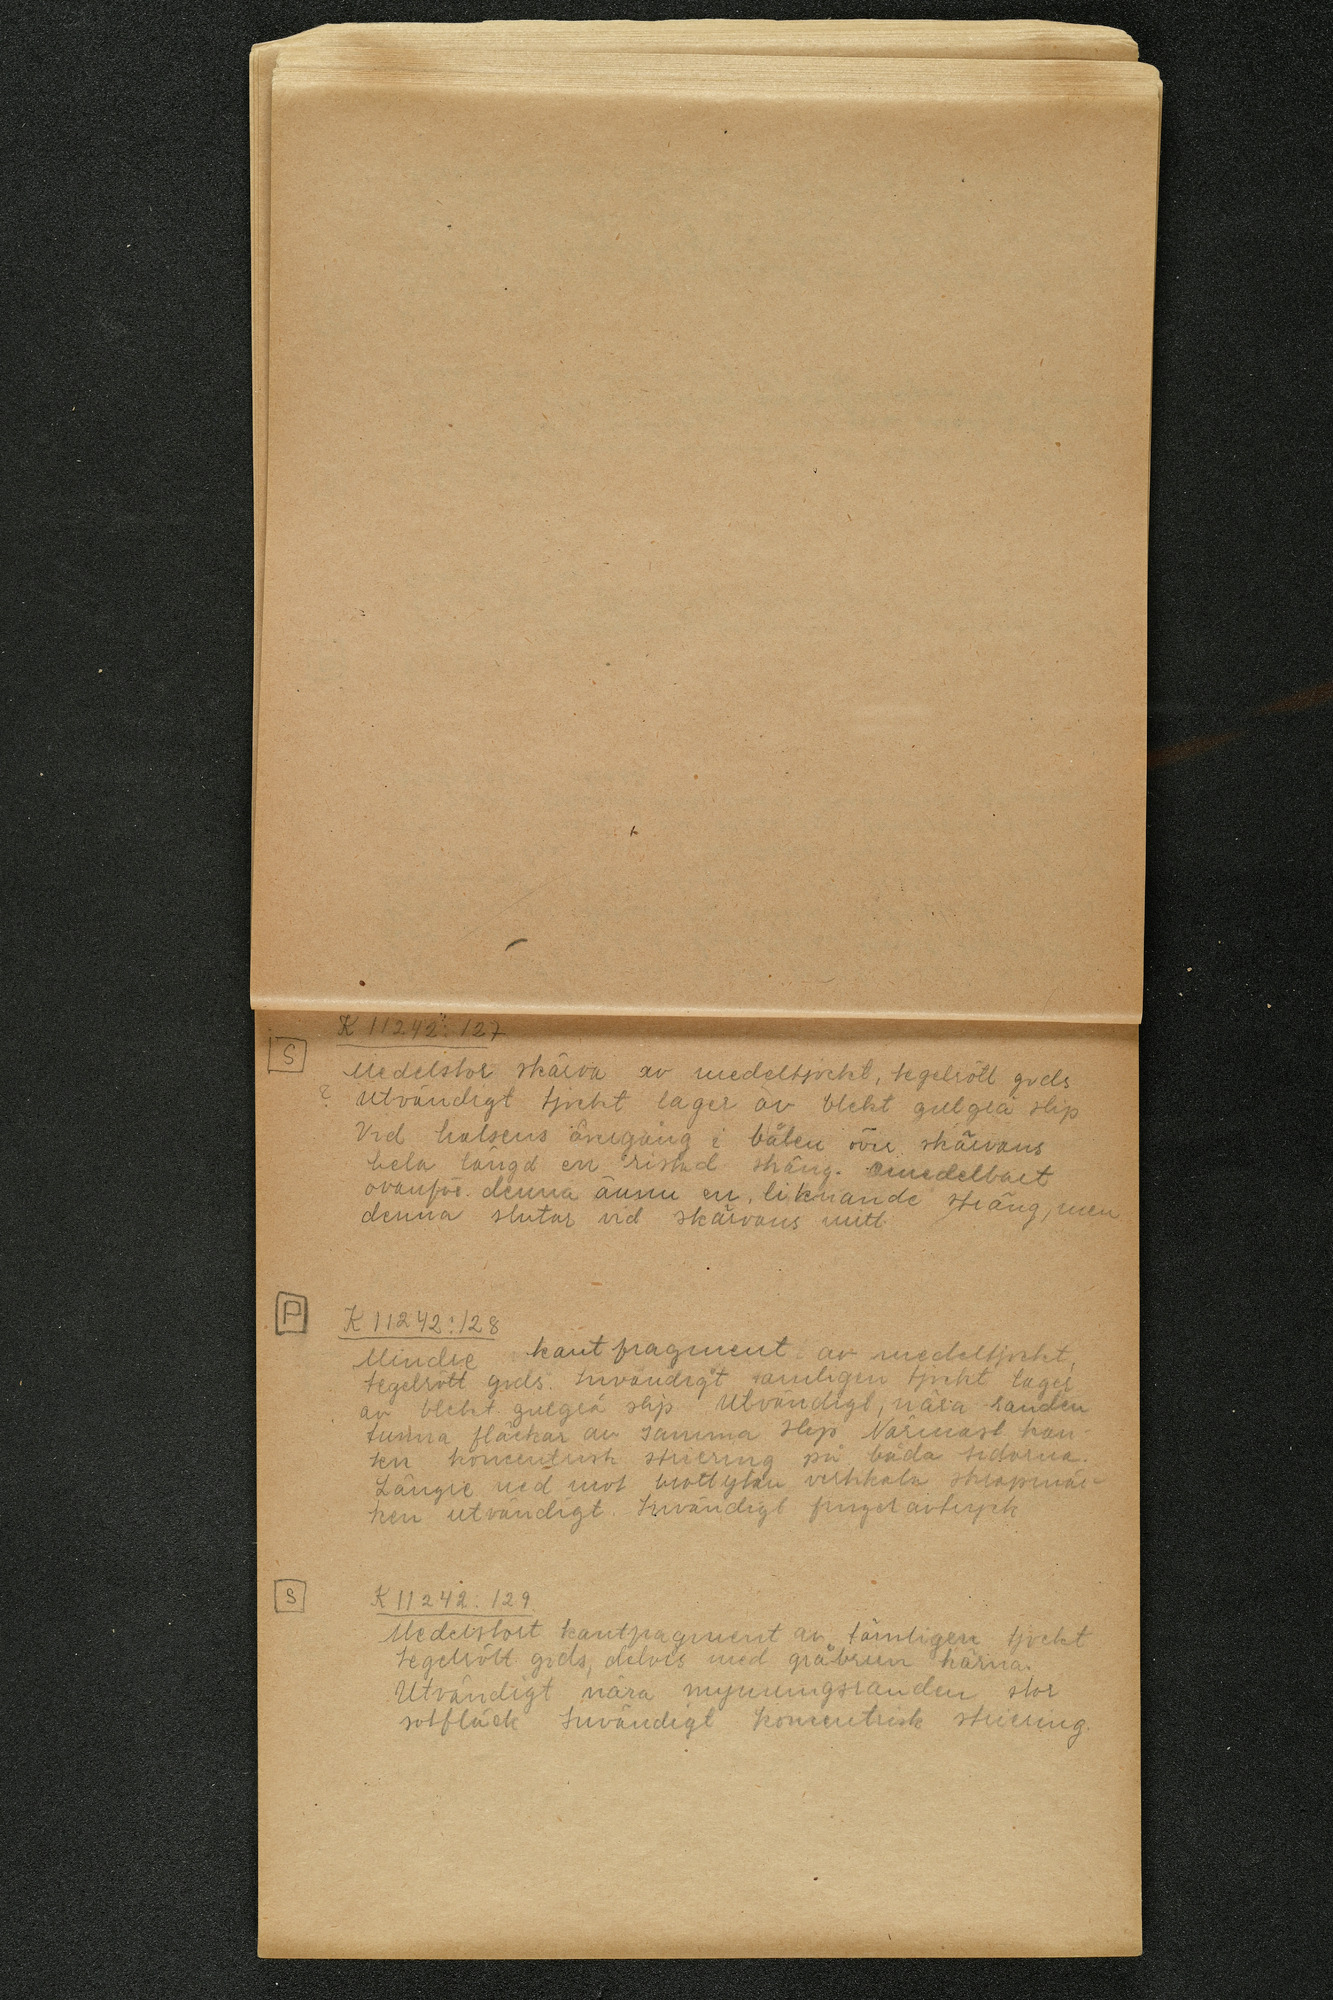 K 11242:127
S
Medelstor skärva av medeltjockt, tegelrött gods
? Utvändigt tjockt lager av blekt gulgrå slip
Vid halsens övergång i bålen över skärvans
hela längd en ristad sträng. Omedelbart
ovanför denna ännu en liknande sträng, men
denna slutar vid skärvans mitt
P
K 11242:128
Mindre kantfragment av medeltjockt,
tegelrött gods. Invändigt tämligen tjockt lager
av blekt gulgrå slip Utvändigt, nära randen
tunna fläckar av samma slip Närmast kan-
ten koncentrisk striering på båda sidorna.
Längre ned mot brottytan vertikala skrapmär-
ken utvändigt. Invändigt fingeravtryck
S
K 11242:129
Medelstort kantfragment av tämligen tjockt
tegelrött gods, delvis med gråbrun kärna.
Utvändigt nära mynningsranden stor
sotfläck Invändigt koncentrisk striering.